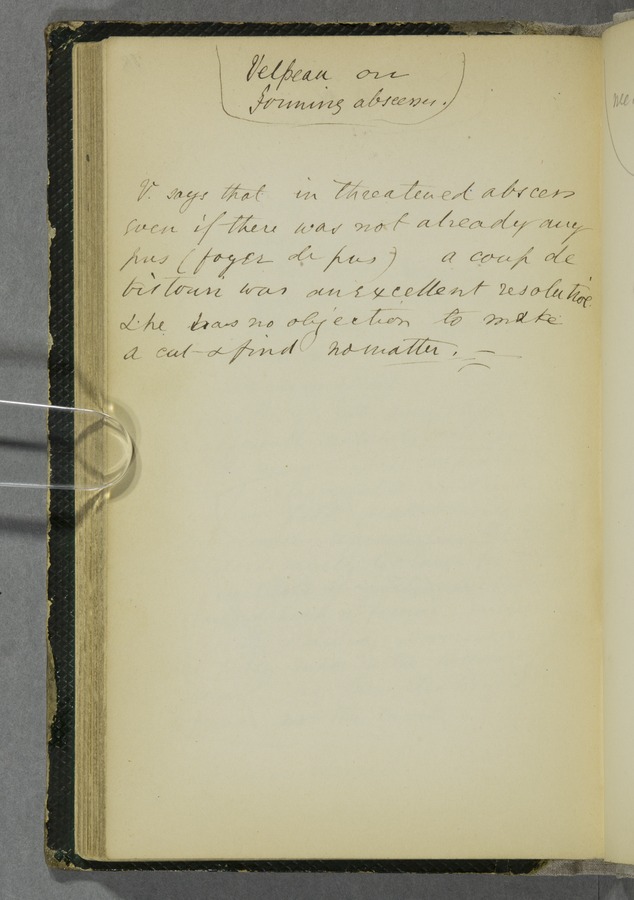 Velpeau on
forming abscess.
V. says that in threatened abscess
even if there was not already any
pus (foyer de pus) a coup de
bistouri was an excellent resolutive
& he has no objection to make
a cut & find no matter. —